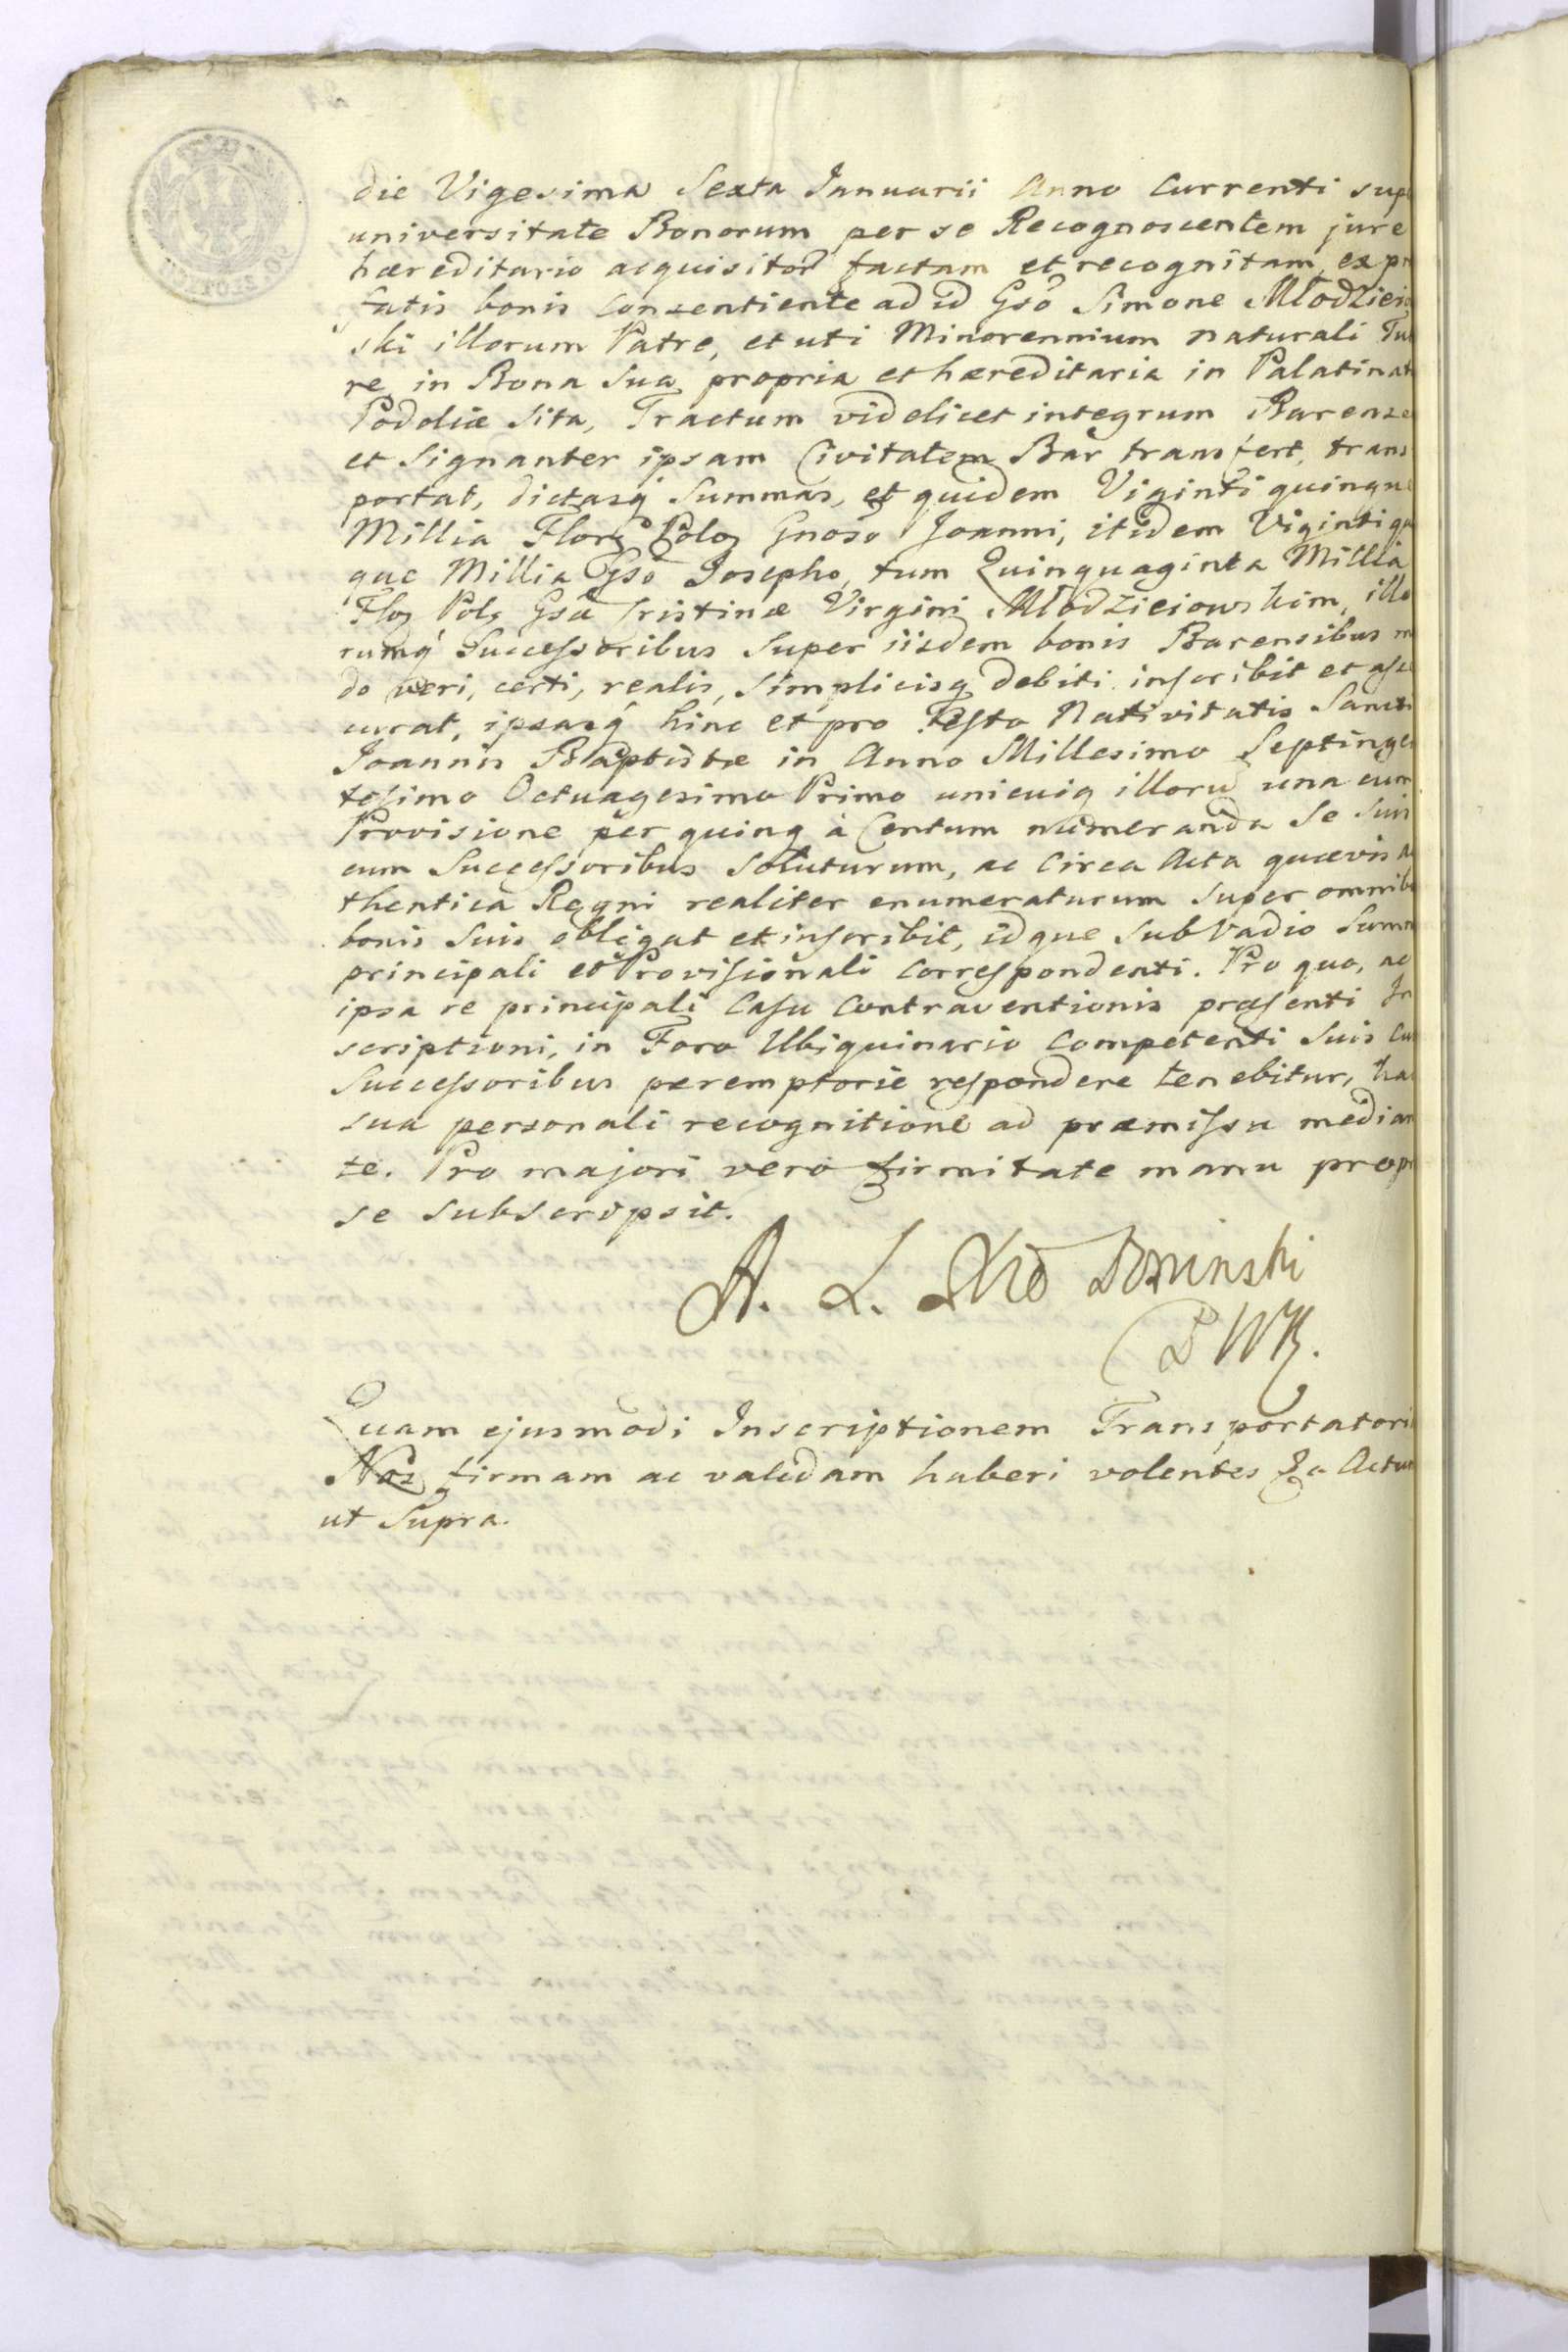 die Vigesima Sexta Januarii Anno Currenti sup
universitate Bonorum per se Recognoscentem jure
hæreditario acquisitor factam et recognitam, ex pr
fatis bonis consentiente ad id Gso Simone Młodzieio
ski illorum Patre, et uti Minorennium naturali Tu
re in Bona Sua propria et hæreditaria in Palatinat
Podoliæ Sita, Tractum videlicet integrum Barense
et Signanter ipsam Civitatem Bar transfert, trans
portat, dictasq́ Summas, et quidem Viginti quinqu
Millia Flor Pol Gnoso Joanni, itidem Viginti qu
que Millia Gso Josepho, tum Quinquaginta Millia
Flo Pol Gsa Cristinæ Virgini Młodzieiowskim, illo
rumq́ Successoribus Super iisdem bonis Barensibus m
do veri, certi, realis, simplicisq debiti inscribit et asse
curat, ipsasq́ hinc et pro Festo Nativitatis Sancti
Joannis Baptistæ in Anno Millesimo Septinge
tesimo Octuagesimo Primo unicuiq illoru una cum
Provisione per quinq à Centum numeranda Se Suis
cum Successoribus Soluturum, ac circa Acta quævis a
thentica Regni realiter enumeraturum Super omnib
bonis Suis obligat et inscribit, idque Sub Vadio Summ
principali et Provisionali correspondenti. Pro quo, ac
ipsa re principali Casu contraventionis præsenti In
scriptioni, in Foro Ubiquinario Competenti Suis cu
Successoribus peremptorie respondere tenebitur, ha
sua personali recognitione ad præmissa median
te. Pro majori vero firmitate manu prop
se subscripsit.
A. L. Xże Poninski
PWK.
Quam ejusmodi Inscriptionem Transportatori
Nos firmam ac validam haberi volentes Actum
ut Supra.